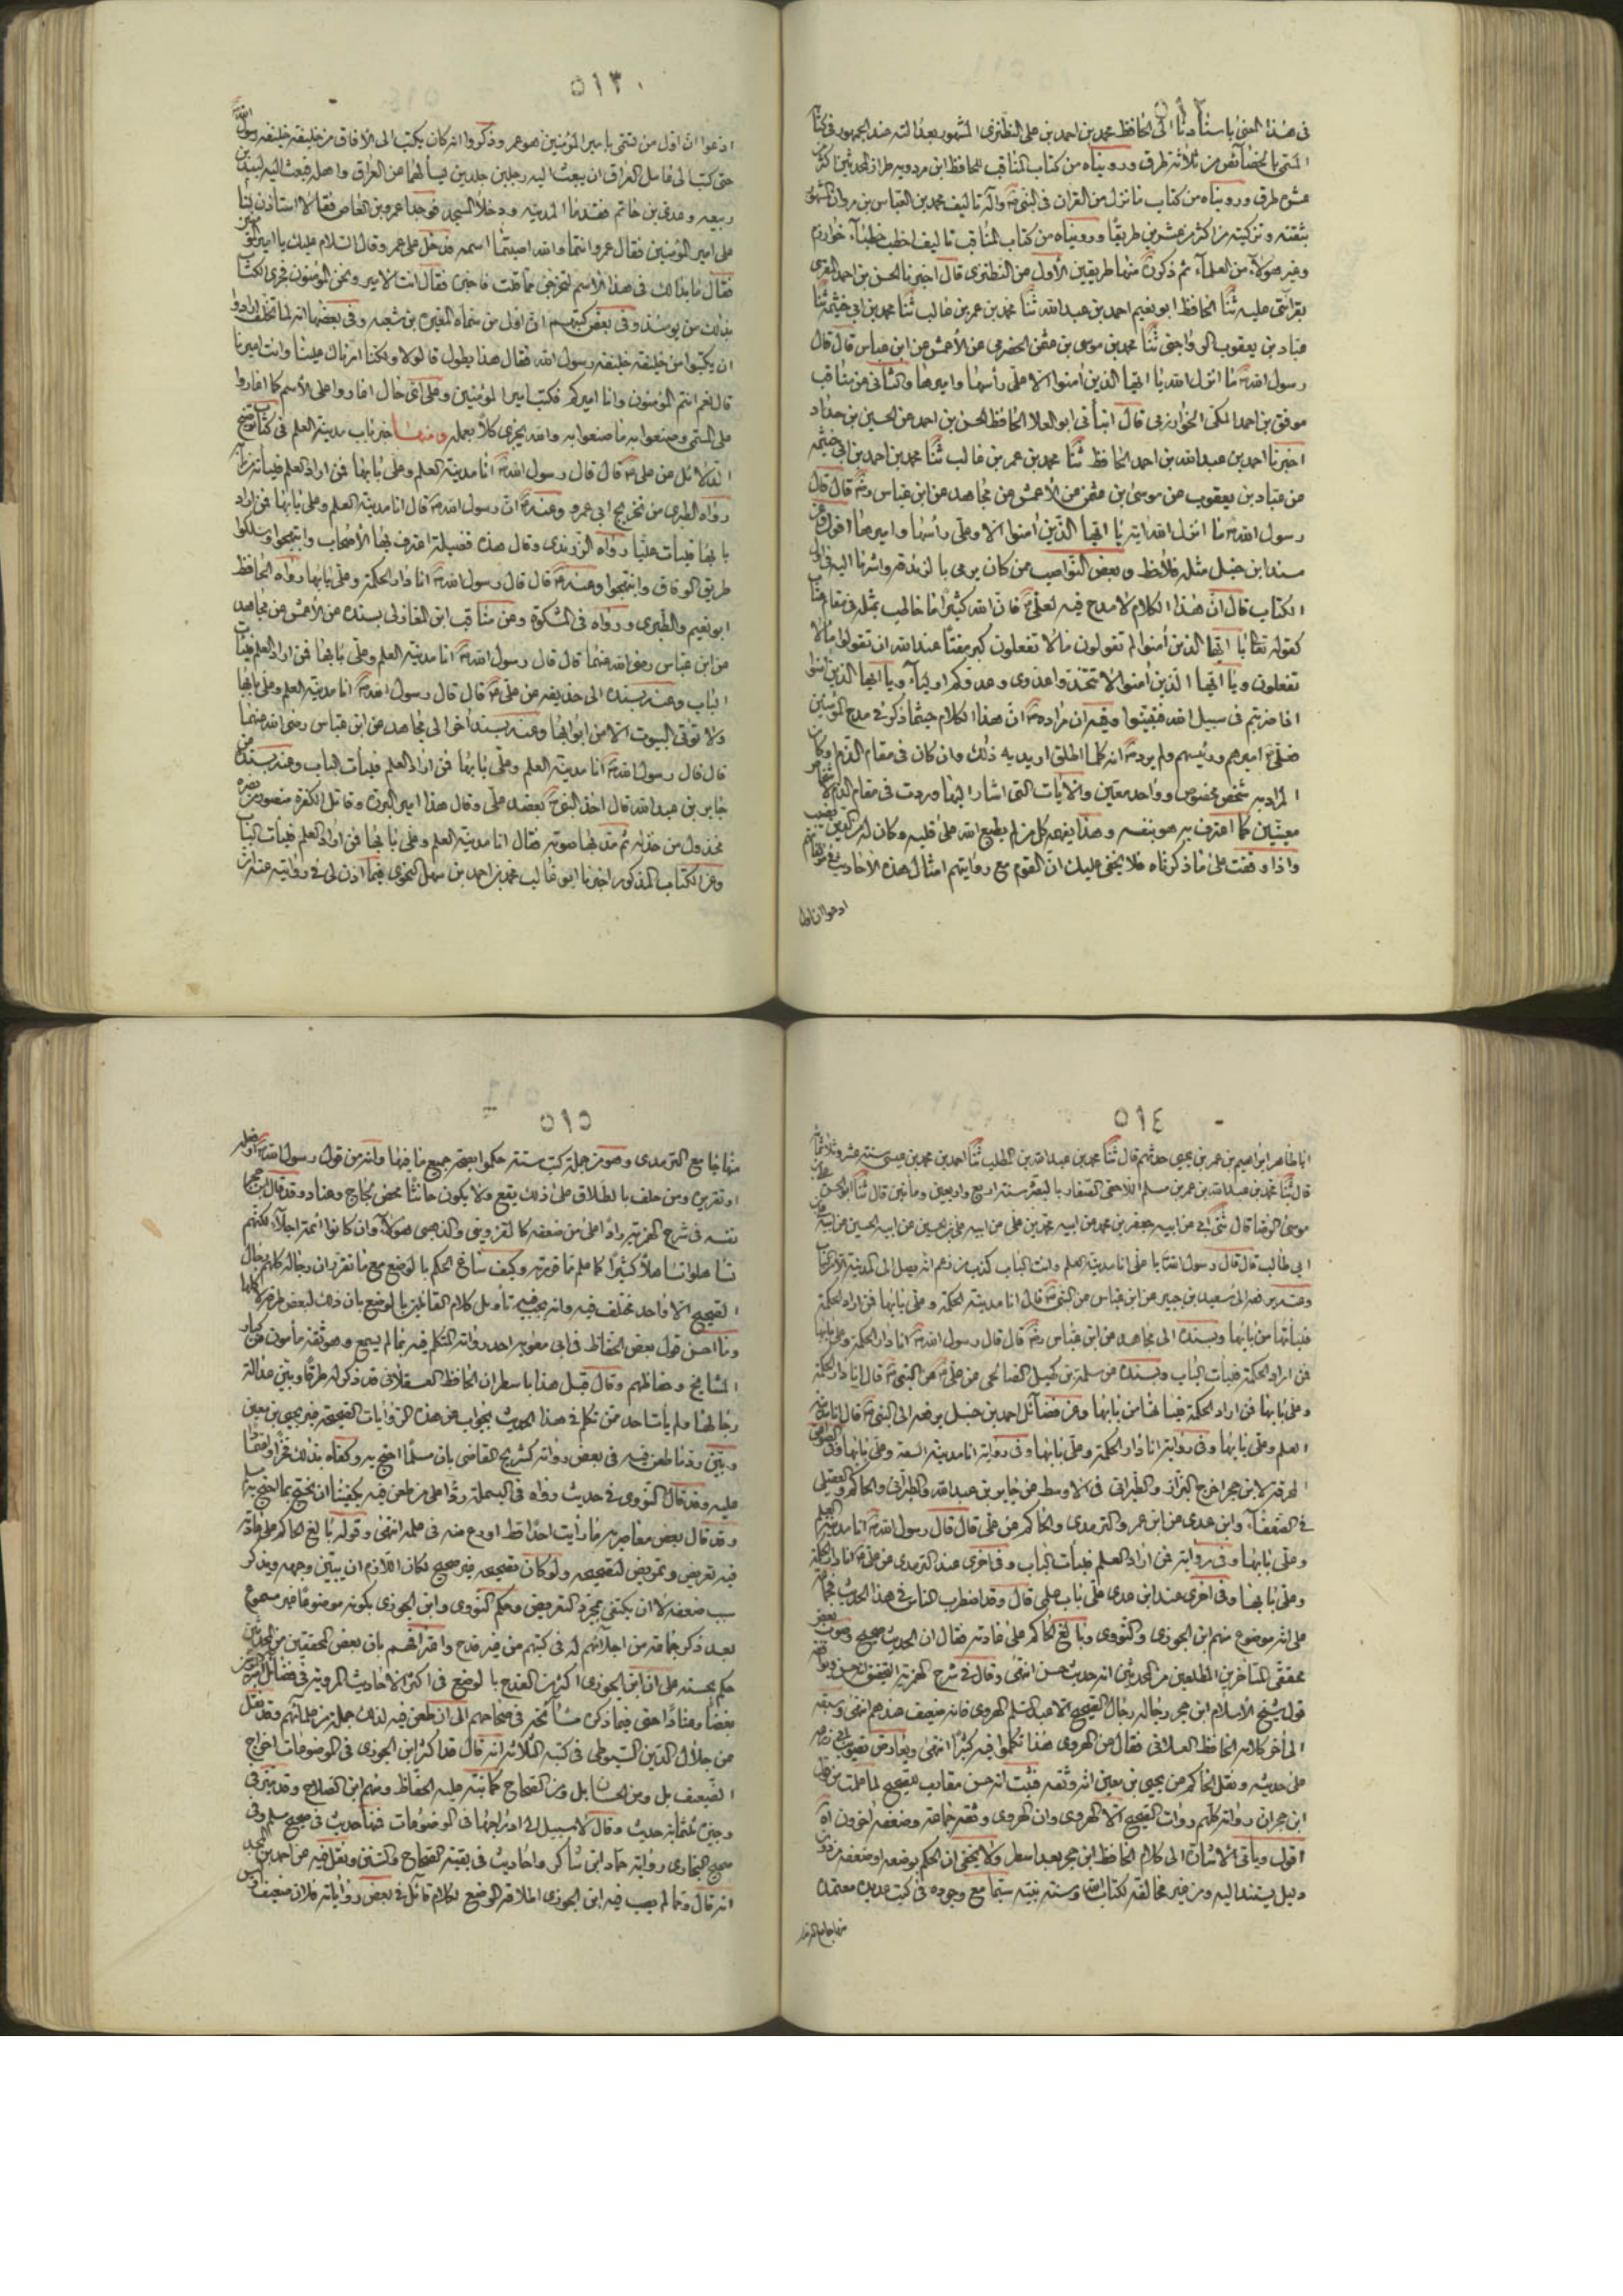 في هذا المعنى باسنادنا الى الحافظ محمد بن احمد بن علي النطنزي المشهور بعدالته عند الجمهور في كتابه
المسمى بالخصائص من ثلاثة طرق ورويناه من كتاب المناقب للحافظ ابن مردويه طراز المحدثين من اكثر
عشرة طرق ورويناه من كتاب ما نزل من القران في النبي وآله تاليف محمد بن العباس بن مروان المشهور
بثقته وتزكيته من اكثر من عشرين طريقا ورويناه من كتاب المناقب تاليف اخطب خطباء خوارزم
وغير هولاء من العلماء ثم ذكرن منها طريقين الأول عن النطنزي قال اخبرنا الحسن بن احمد المقري
بقرائتي عليه ثنا الحافظ ابو نعيم احمد بن عبدالله ثنا محمد بن عمر بن غالب ثنا محمد بن ابي خثيمه ثنا
عباد بن يعقوب الرواجني ثنا محمد بن موسى بن عثمن الحضرمي عن الأعمش عن ابن عباس قال قال
رسول الله ما انزل الله يا ايها الذين امنوا الا علي رأسها واميرها والثاني عن مناقب
موفق بن احمد المكي الخوارزمي قال انبأني ابو العلا الحافظ الحسن بن احمد عن الحسين بن حداد
اخبرنا احمد بن عبدالله بن احمد الحافظ ثنا محمد بن عمر بن غالب ثنا محمد بن احمد بن ابي خثيمه
عن عباد بن يعقوب عن موسى بن عثمن عن الأعمش عن مجاهد عن ابن عباس قال قال
رسول الله ما انزل الله اية يا ايها الذين امنوا الا وعلي رأسها واميرها اقول وعن
مسند ابن حنبل مثله فلاحظ وبعض النواصب من كان يرمي بالزندقة واشرنا اليه في
الكتاب قال ان هذا الكلام لا مدح فيه لعلي فان الله كثيرا ما خاطب بمثله في مقام عتاب
كقوله تعا يا ايها الذين أمنوا لم تقولون ما لا تفعلون كبر مقتا عند الله ان تقولوا ما لا
تفعلون ويا ايها الذين امنوا لا تتخذوا عدوي وعدوكم اولياء ويا ايها الذين امنوا
اذا ضربتم في سبيل الله فتبينوا وفيه ان مراده ان هذا الكلام حيثما ذكر في مدح المؤمنين
فعلي اميرهم ورئيسهم ولم يرد انه كلما اطلق اريد به ذلك وان كان في مقام الذم وكان
المراد به شخص مخصوص وواحد معين والايات التي اشار اليها وردت في مقام الذم لاشخاص
معينين كما اعترف به هو بنفسه وهذا يفهمه كل من لم يطبع الله على قلبه وكان له الدين
واذا وقفت على ما ذكرناه فلا يخفى عليك ان القوم مع روايتهم امثال هذه الأحاديث
ادعوا ان اول
٥١٣
ادعوا ان اول من سمي بامير المؤمنين هو عمر وذكروا انه كان يكتب الى الافاق من خليفة خليفة رسول الله
حتى كتب الى عامل العراق ان يبعث اليه رجلين جلدين يسألهما عن العراق واهله فبعث اليه لبيد بن
ربيعه وعدي بن حاتم فقدما المدينه ودخلا المسجد فوجدا عمرو بن العاص فقالا استأذن لنا
على امير المؤمنين فقال عمرو انتما والله اصبتما اسمه فدخل على عمر وقال السلام عليك يا امير المؤمنين
فقال ما بدا لك في هذا الأسم لتخرجن مما قلت فاخبره فقال انت الامير ونحن المؤمنون فجرى الكتاب
بذلك من يومئذ وفي بعض كتبهم ان اول من سماه المغيرة بن شعبه وفي بعضها انه لما استخلف ارادوا
ان يكتبوا من خليفة خليفة رسول الله فقال هذا يطول قالوا لا ولكنا امرناك علينا وانت اميرنا
قال نعم انتم المؤمنون وانا اميركم فكتب امير المؤمنين وعلى اي حال اغاروا على الأسم كما اغاروا
على المسمى وصنعوا به ما صنعوا به والله يجزي كلا بعمله ومنها خبر باب مدينة العلم في كتاب توضيح
الدلائل عن علي قال قال رسول الله انا مدينة العلم وعلي بابها فمن اراد العلم فليأته من بابه
رواه الطبري من تخريج ابي عمرو وعنه ان رسول الله قال انا مدينة العلم وعلي بابها فمن اراد
بابها فليأت عليا رواه الزرندي وقال هذه فضيلة اعترف بها الأصحاب وابتهجوا وسلكوا
طريق الوفاق وانتهجوا وعنه قال قال رسول الله انا دار الحكمة وعلي بابها رواه الحافظ
ابو نعيم والطبري ورواه في المشكوة وعن مناقب ابن المغازلي بسنده عن الأعمش عن مجاهد
عن ابن عباس رضي الله عنهما قال قال رسول الله انا مدينة العلم وعلي بابها فمن اراد العلم فليأت
الباب وعنه بسنده الى حذيفه عن علي قال قال رسول الله انا مدينة العلم وعلي بابها
ولا تؤتى البيوت الا من ابوابها وعنه بسند اخر الى مجاهد عن ابن عباس رضي الله عنهما
قال قال رسول الله انا مدينة العلم وعلي بابها فمن اراد العلم فليأت الباب وعنه بسنده عن
جابر بن عبدالله قال اخذ النبي بعضد علي وقال هذا امير البررة وقاتل الكفرة منصور من نصره
مخذول من خذله ثم مد بها صوته فقال انا مدينة العلم وعلي بابها فمن اراد العلم فليأت الباب
وعن الكتاب المذكور اخبرنا ابو غالب محمد بن احمد بن سهل النحوي فيما اذن لي في روايته عنه ان
٥١٤
ابا طاهر ابراهيم بن عمر بن يحيى حدثهم قال ثنا محمد بن عبدالله بن المطلب ثنا احمد بن محمد بن عيسى سنة عشر وثلاثمائة
قال ثنا محمد بن عبدالله بن عمر بن مسلم اللاحقي الصفار بالبصرة سنة اربع واربعين ومأتين قال ثنا ابو الحسن علي بن
موسى الرضا قال ثني ابي عن ابيه جعفر بن محمد عن ابيه محمد بن علي عن ابيه علي بن الحسين عن ابيه الحسين عن ابيه علي بن
ابي طالب قال قال رسول الله يا علي انا مدينة العلم وانت الباب كذب من زعم انه يصل الى المدينة الا من الباب
وعنه يرفعه الى سعيد بن جبير عن ابن عباس عن النبي قال انا مدينة الحكمة وعلي بابها فمن اراد الحكمة
فليأتها من بابها وبسنده الى مجاهد عن ابن عباس قال قال رسول الله انا دار الحكمة وعلي بابها
فمن اراد الحكمة فليأت الباب وبسنده عن سلمة بن كهيل الصنابحي عن علي عن النبي قال انا دار الحكمة
وعلي بابها فمن اراد الحكمة فليأتها من بابها وعن فضائل احمد بن حنبل يرفعه الى النبي قال انا مدينة
العلم وعلي بابها وفي رواية انا دار الحكمة وعلي بابها وفي رواية انا مدينة السنة وعلي بابها وفي الصواعق
المحرقة لابن حجر اخرج البزاز والطبراني في الاوسط عن جابر بن عبدالله والطبراني والحاكم والعقيلي
في الضعفاء وابن عدي عن ابن عمر والترمدي والحاكم عن علي قال قال رسول الله انا مدينة العلم
وعلي بابها وفي رواية فمن اراد العلم فليأت الباب وفي اخرى عند الترمدي عن علي انا دار الحكمة
وعلي بابها وفي اخرى عند ابن عدي علي باب علمي قال وقد اضطرب الناس في هذا الحديث فجماعة
على انه موضوع منهم ابن الجوزي والنووي وبالغ الحاكم على عادته فقال ان الحديث صحيح وصوب بعض
محققي المتأخرين المطلعين من المحدثين انه حديث حسن انتهى وقال في شرح الهمزية التحقيق انه حسن
قول شيخ الأسلام ابن حجر رجاله رجال الصحيح الا عبدالسلم الهروي فانه ضعيف عندهم انتهى وسبقه
الى اخر كلامه الحافظ العلائي فقال عن الهروي هذا تكلموا فيه كثيرا انتهى ويعارض
على حديثه ونقل الحاكم عن يحيى بن معين انه وثقه فثبت انه حسن مقارب للصحيح لما علمت من قول
ابن حجر ان رواته كلهم روات الصحيح الا الهروي وان الهروي وثقه جماعة وضعفه اخرون اه
اقول ويأتي الاشارة الى كلام الحافظ ابن حجر بعد اسطر ولا يخفى ان الحكم بوضعه او ضعفه من دون
دليل يستند اليه ومن غير مخالفه لكتاب الله وسنة نبيه سيما مع وجوده في كتب عديده معتمدة
منها جامع الترمد
٥١٥
منها جامع الترمدي وهو من جملة كتب ستة حكموا بصحة جميع ما فيها وانه من قول رسول الله او فعله
او تقريره ومن حلف بالطلاق على ذلك يقع ولا يكون حانثا محض لجاج وعناد وقد قال ابن حجر
نفسه في شرح الهمزية رادا على من ضعفه كالقزويني والذهبي هولاء وان كانوا ائمة اجلاء لكنهم
تساهلوا تساهلا كثيرا كما علم مما قررته وكيف ساغ الحكم بالوضع مع ما تقرر ان رجاله كلهم رجال
الصحيح الا واحد مختلف فيه وانه يجب تأويل كلام القائلين بالوضع بان ذلك لبعض طرقه لا كلها
وما احسن قول بعض الحفاظ في ابي معويه احد رواته المتكلم فيه بما لم يسمع وهو ثقة مأمون من كبار
المشايخ وحفاظهم وقال قبل هذا باسطر ان الحافظ العسقلاني قد ذكر له طرقا وبين عدالة
رجالها ولم يأت احد ممن تكلم في هذا الحديث بجواب عن هذه الروايات الصحيحة غير يحيى بن معين
وبين رد ما طعن فيه في بعض رواته كشريح القاضي بان مسلما احتج به وكفاه بذلك فخرا وفضلا
عليه وقد قال النووي في حديث رواه في البسملة ردا على من طعن فيه يكفينا ان نحتج بما احتج به
وقد قال بعض معاصريه ما رأيت احدا قط اورع منه في علمه انتهى وقوله بالغ الحاكم على عادته
فيه تعريض وتمريض لتصحيحه ولو كان تصحيحه غير صحيح لكان اللازم ان يبين وجهه ويذكر
سبب ضعفه لا ان يكتفي بمجرد التعريض وحكم النووي وابن الجوزي بكونه موضوعا غير مسموع
بعد ذكر جماعة من اجلائهم له في كتبهم من غير قدح واعترافهم بان بعض المحققين من المحدثين
حكم بحسنه على ان ابن الجوزي اكثر من القدح بالوضع في اكثر الاحاديث المروية في فضائل
بغضا وعنادا حتى فيما ذكره مشائخه في صحاحهم الى ان طعن فيه لذلك جملة من علمائهم وقد نقل
عن جلال الدين السيوطي في كتبه الثلاثة انه قال قد اكثر ابن الجوزي في الموضوعات اخراج
الضعيف بل ومن الحسان بل ومن الصحاح كما نبه عليه الحفاظ ومنهم ابن الصلاح وقد بين في
وجيزه ثلثمأية حديث وقال لا سبيل الى ادراجها في الموضوعات فمنها حديث في صحيح مسلم وفي
صحيح البخاري رواية حماد ابن شاكر واحاديث في بقية الصحاح والسنن ونقل فيه عن احمد بن المجد
انه قال ومما لم يصب فيه ابن الجوزي اطلاقه الوضع لكلام قائل في بعض رواياته فلان ضعيف